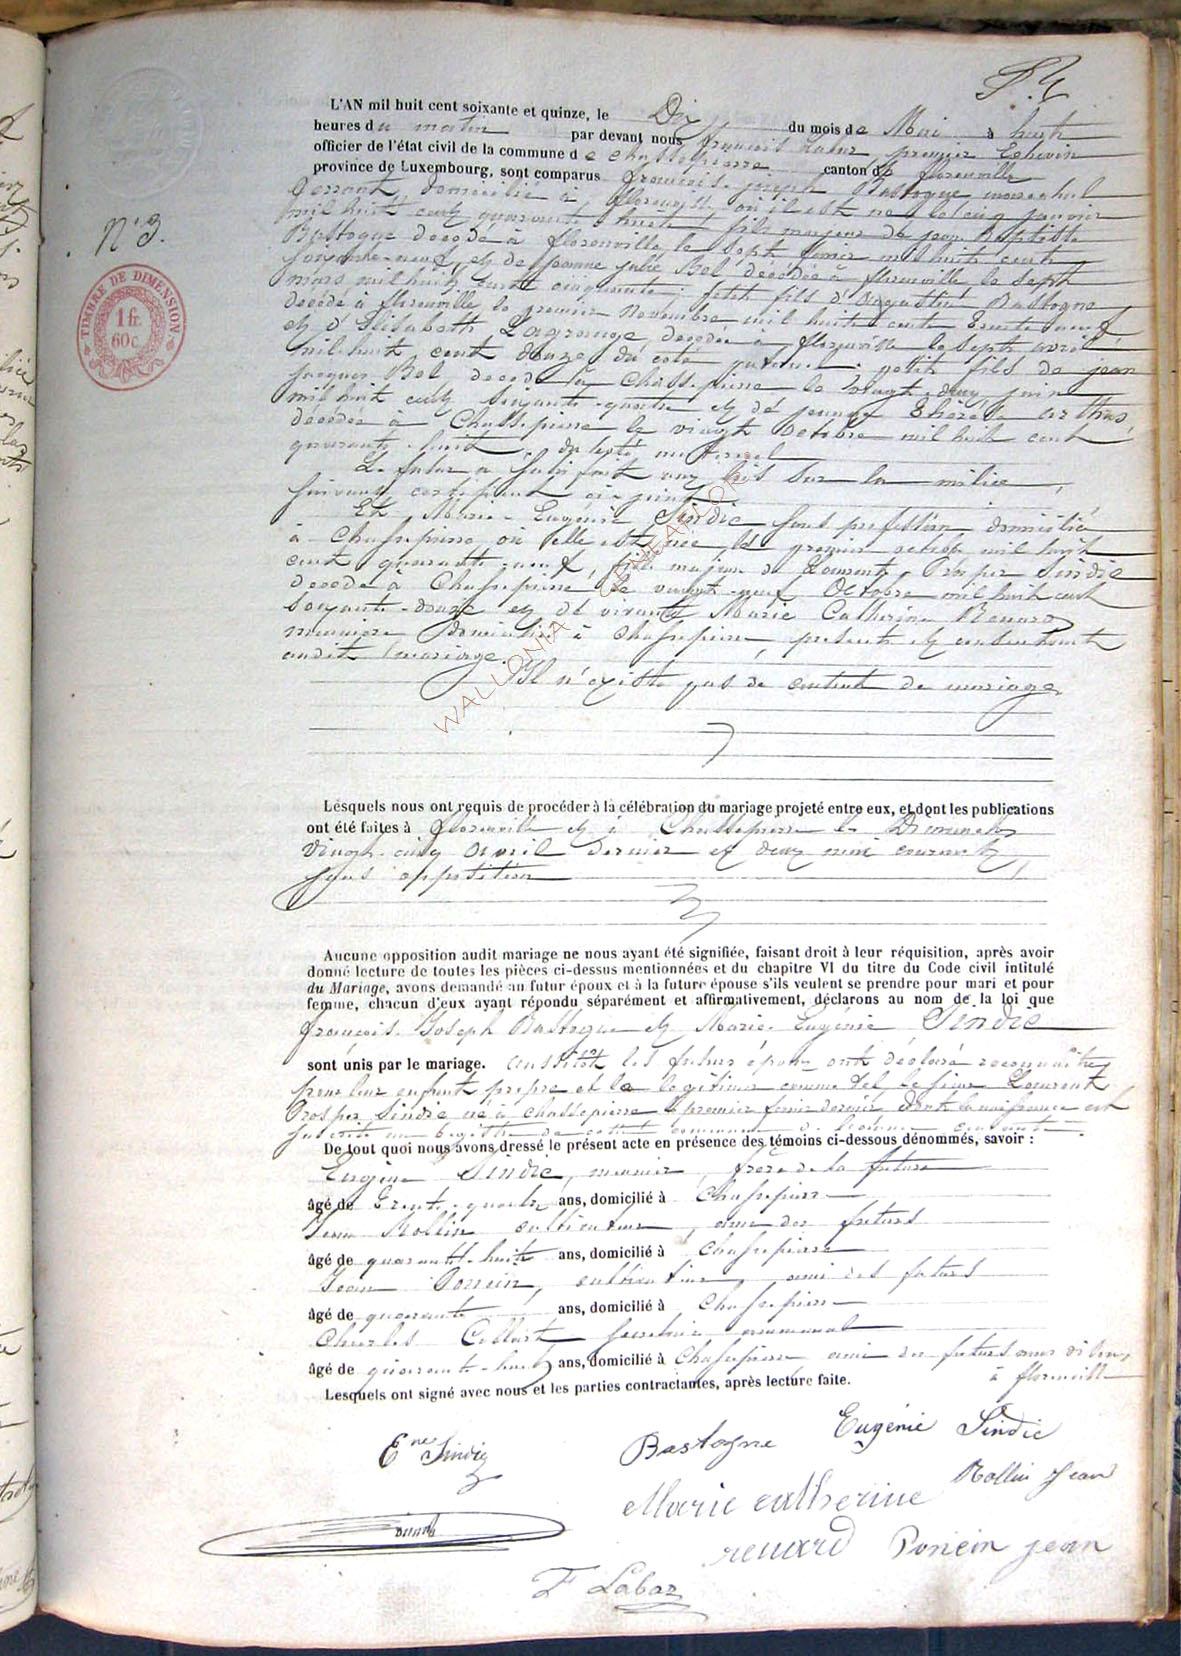 L'AN mil huit cent soixante et quinze, le Dix du mois de Mai à huit
heures du matin par devant nous françois Labar premier Echevin
officier de l'état civil de la commune de Chassepierre canton de florenville
province de Luxembourg, sont comparus françois joseph Bastogne marechal
ferrant, domicilié à florenville où il est né le cinq janvier
mil huit cent quarante huit fils majeur de jean Baptiste
Bastogne decedé à florenville le sept février mil huit cent
soixante-neuf, et de jeanne julie Bol décédée à florenville le sept
mars mil huit cent cinquante ; petit fils d'Augustin Bastogne
decédé à florenville le premier Novembre mil huit cent trente neuf
et d'Elisabeth Lagrange, decedée à florenville le sept avril
mil huit cent douze du coté paternel. petit fils de jean
jacques Bol decedé à Chassepierre le vingt-deux juin
mil huit cent soixante-quatre et de jeanne thérèse
décédée à Chassepierre le vingt octobre mil huit cent
quarante-huit, du coté maternel
Le futur a satisfait aux lois sur la milice,
suivant certificat ci-joint
Et Marie-Eugénie Sindic sans profession domiciliée
à Chassepierre où elle est née le premier octobre mil huit
cent quarante-neuf, fille majeure de Laurent-Prosper Sindic
decedé à Chassepierre le vingt-neuf Octobre mil huit cent
soixante-douze et de vivante Marie Catherine Renard
meunière domiciliée à Chassepierre, présente et consentante
audit mariage.
Il n'existe pas de contrat de mariage
Lesquels nous ont requis de procéder à la célébration du mariage projeté entre eux, et dont les publications
ont été faites à florenville et à Chassepierre les Dimanches
vingt-cinq avril dernier et deux mai courant,
sans opposition
Aucune opposition audit mariage ne nous ayant été signifiée, faisant droit à leur réquisition, après avoir
donné lecture de toutes les pièces ci-dessus mentionnées et du chapitre VI du titre du Code civil intitulé
du Mariage, avons demandé au futur époux et à la future épouse s'ils veulent se prendre pour mari et pour
femme, chacun d'eux ayant répondu séparément et affirmativement, déclarons au nom de la loi que
françois Joseph Bastogne et Marie-Eugénie Sindic
sont unis par le mariage. aussitôt les futurs époux ont déclaré reconnaître
pour leur enfant propre et le légitimer comme tel le sieur Laurent
Prosper Sindic né à Chassepierre le premier février dernier dont la naissance est
inscrite au registre de cette commune de l'année courante
De tout quoi nous avons dressé le présent acte en présence des témoins ci-dessous dénommés, savoir :
Eugène Sindic, meunier, frère de la future
âgé de trente-quatre ans, domicilié à Chassepierre
Jean Rollin cultivateur, ami des futurs
âgé de quarante-huit ans, domicilié à Chassepierre
Jean Poncin, cultivateur, ami des futurs
âgé de quarante ans, domicilié à Chassepierre
Charles Collart secrétaire communal
âgé de quarante-huit ans, domicilié à Chassepierre ami des futurs
à florenville
Lesquels ont signé avec nous et les parties contractantes, après lecture faite.
Ene Sindic
Bastogne
Eugénie Sindic
Rollin Jean
Marie catherine
renard
Poncin jean
F Labar
N° 3.
TIMBRE DE DIMENSION
1 fr.
60 c.
WALLONIA GENEALOGIE